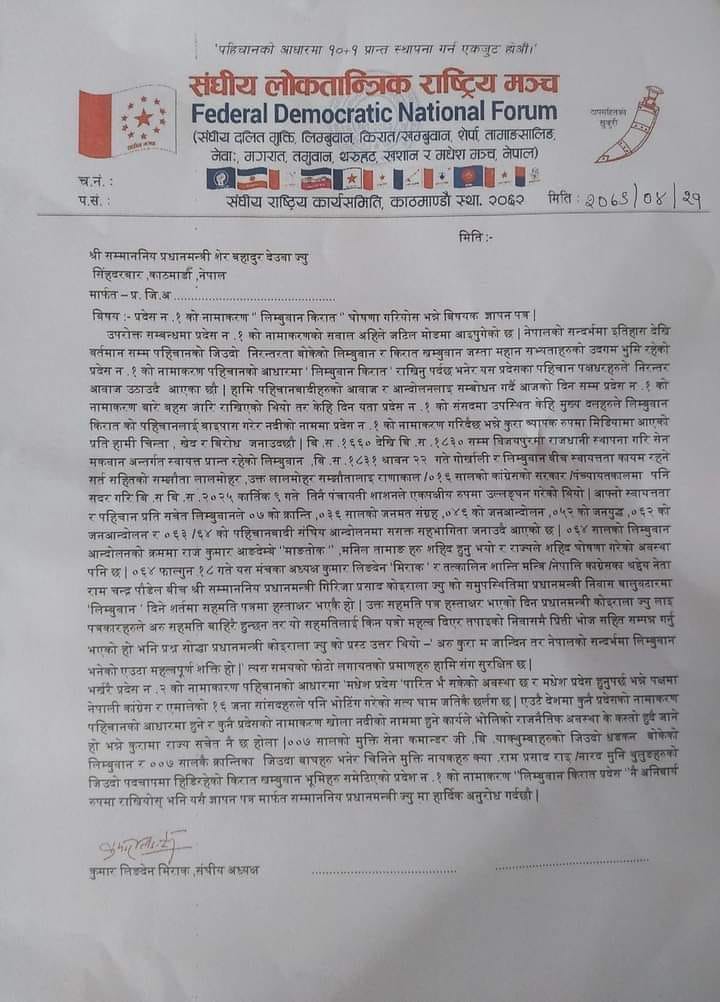 'पहिचानको आधारमा १०+१ प्रान्त स्थापना गर्न एकजुट होऔं।'
संघीय लोकतान्त्रिक राष्ट्रिय मञ्च
Federal Democratic National Forum
(संघीय दलित मुक्ति, लिम्बुवान, किरात/खम्बुवान, शेर्पा, तामाङसालिङ,
नेवाः, मगरात, तमुवान, थरुहट, खशान र मधेश मञ्च, नेपाल)
थापसहितको
खुकुरी
च.नं. :
प.सं. :
संघीय राष्ट्रिय कार्यसमिति, काठमाण्डौ स्था. २०६२
मिति : २०७८/०४/२१
मिति :-
श्री सम्माननिय प्रधानमन्त्री शेर बहादुर देउबा ज्यु
सिंहदरबार ,काठमाडौं ,नेपाल
मार्फत – प्र. जि.अ ........................................
बिषय :- प्रदेस न .१ को नामाकरण " लिम्बुवान किरात " घोषणा गरियोस भन्ने बिषयक ज्ञापन पत्र |
उपरोक्त सम्बन्धमा प्रदेस न .१ को नामाकरणको सवाल अहिले जटिल मोडमा आइपुगेको छ | नेपालको सन्दर्भमा इतिहास देखि
बर्तमान सम्म पहिचानको जिउदो निरन्तरता बोकेको लिम्बुवान र किरात खम्बुवान जस्ता महान सभ्यताहरुको उदगम भुमि रहेको
प्रदेस न .१ को नामाकरण पहिचानको आधारमा ' लिम्बुवान किरात ' राखिनु पर्दछ भनेर यस प्रदेसका पहिचान पक्षधरहरुले निरन्तर
आवाज उठाउदै आएका छौ | हामि पहिचानबादीहरुको आवाज र आन्दोलनलाइ सम्बोधन गर्दै आजको दिन सम्म प्रदेस न .१ को
नामाकरण बारे बहस जारि राखिएको थियो तर केहि दिन यता प्रदेस न .१ को संसदमा उपस्थित केहि मुख्य दलहरुले लिम्बुवान
किरात को पहिचानलाई बाइपास गरेर नदीको नाममा प्रदेस न .१ को नामाकरण गरिदैछ भन्ने कुरा ब्यापक रुपमा मिडियामा आएको
प्रति हामी चिन्ता , खेद र बिरोध जनाउदछौ | बि .स .१६६० देखि बि .स .१८३० सम्म बिजयपुरमा राजधानी स्थापना गरि सेन
मकवान अन्तर्गत स्वायत्त प्रान्त रहेको लिम्बुवान ,बि .स .१८३१ श्रावन २२ गते गोर्खाली र लिम्बुवान बीच स्वायत्तता कायम रहने
सर्त सहितको सम्झौता लालमोहर ,उक्त लालमोहर सम्झौतालाइ राणाकाल /०१६ सालको कांग्रेसको सरकार /पंच्यायतकालमा पनि
सदर गरि बि .स बि .स .२०२५ कार्तिक ९ गते तिनै पंचायती शासनले एकपक्षीय रुपमा उल्लङ्घन गरेको थियो | आफ्नो स्वायत्तता
र पहिचान प्रति सचेत लिम्बुवानले ०७ को क्रान्ति ,०३६ सालको जनमत संग्रह ,०४६ को जनआन्दोलन ,०५२ को जनयुद्ध ,०६२ को
जनआन्दोलन र ०६३ /६४ को पहिचानबादी संघिय आन्दोलनमा ससक्त सहभागिता जनाउदै आएको छ | ०६४ सालको लिम्बुवान
आन्दोलनको क्रममा राज कुमार आङदेम्बे "माङतोक" ,मनिल तामाङ हरु शहिद हुनु भयो र राज्यले शहिद घोषणा गरेको अवस्था
पनि छ | ०६४ फाल्गुन १८ गते यस मंचका अध्यक्ष कुमार लिङदेन 'मिराक ' र तत्कालिन शान्ति मन्त्रि /नेपालि कांग्रेसका श्रद्देय नेता
राम चन्द्र पौडेल बीच श्री सम्माननिय प्रधानमन्त्री गिरिजा प्रसाद कोइराला ज्यु को समुपस्थितिमा प्रधानमन्त्री निवास बालुवटारमा
'लिम्बुवान ' दिने शर्तमा सहमति पत्रमा हस्ताक्षर भएकै हो | उक्त सहमति पत्र हस्ताक्षर भएको दिन प्रधानमन्त्री कोइराला ज्यु लाइ
पत्रकारहरुले अरु सहमति बाहिरै हुन्छन तर यो सहमतिलाई किन यत्रो महत्व दिएर तपाइको निवासमै प्रिती भोज सहित सम्पन्न गर्नु
भएको हो भनि प्रश्न सोद्धा प्रधानमन्त्री कोइराला ज्यु को प्रस्ट उत्तर थियो –' अरु कुरा म जान्दिन तर नेपालको सन्दर्भमा लिम्बुवान
भनेको एउटा महत्वपूर्ण शक्ति हो |' त्यस समयको फोटो लगायतको प्रमाणहरु हामि संग सुरक्षित छ |
भर्खरै प्रदेस न .२ को नामाकारण पहिचानको आधारमा 'मधेश प्रदेस 'पारित भै सकेको अवस्था छ र मधेश प्रदेस हुनुपर्छ भन्ने पक्षमा
नेपाली कांग्रेस र एमालेको १६ जना सांसदहरुले पनि भोटिंग गरेको सत्य घाम जतिकै छर्लंग छ | एउटै देशमा कुनै प्रदेसको नामाकरण
पहिचानको आधारमा हुने र कुनै प्रदेसको नामाकरण खोला नदीको नाममा हुने कार्यले भोलिको राजनैतिक अवस्था के कस्तो हुदै जाने
हो भन्ने कुरामा राज्य सचेत नै छ होला |००७ सालको मुक्ति सेना कमाण्डर जी .बि .याक्थुम्बाहरुको जिउदो धडकन बोकेको
लिम्बुवान र ००७ सालकै क्रान्तिका जिउदा बाघहरु भनेर चिनिने मुक्ति नायकहरु क्या .राम प्रसाद राइ /नारद मुनि थुलुङहरुको
जिउदो पदचापमा हिडिरहेको किरात खम्बुवान भूमिहरु समेटिएको प्रदेश न .१ को नामाकरण "लिम्बुवान किरात प्रदेस "नै अनिवार्य
रुपमा राखियोस् भनि यसै ज्ञापन पत्र मार्फत सम्माननिय प्रधानमन्त्री ज्यु मा हार्दिक अनुरोध गर्दछौ |
कुमार लिङदेन मिराक ,संघीय अध्यक्ष